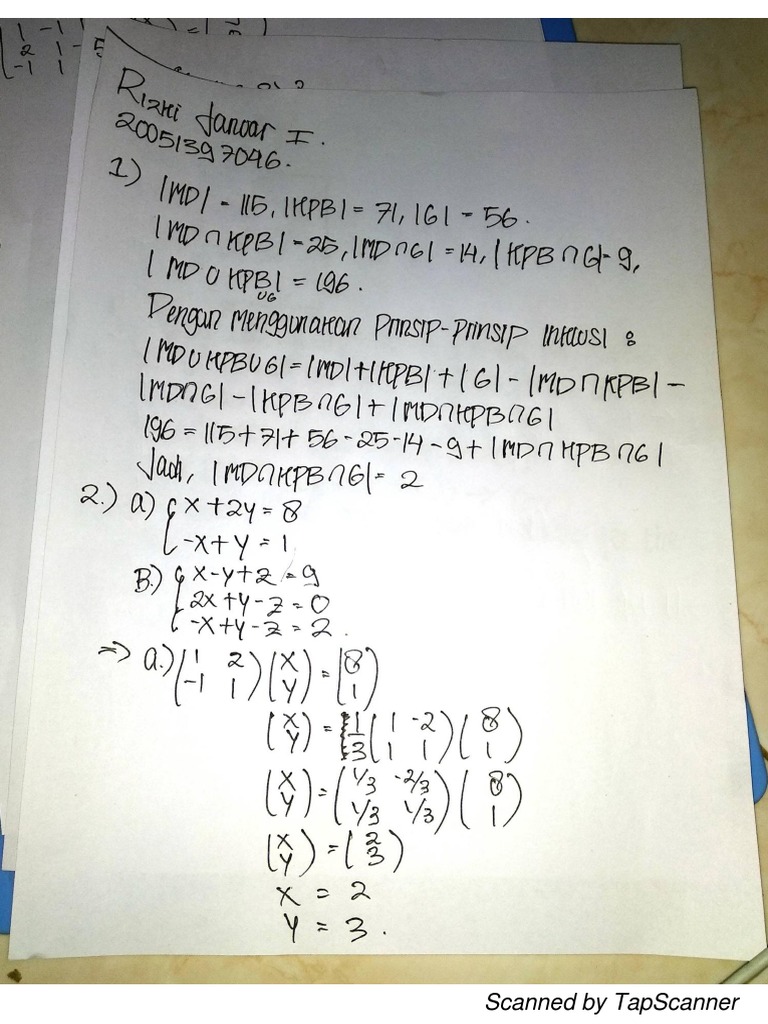 1 -1 1
2 1 -
-1 1
Rizki Januar I.
20051397046.
1) |MD| = 115, |KPB| = 71, |G| = 56.
|MD ∩ KPB| = 25, |MD ∩ G| = 14, |KPB ∩ G| = 9,
|MD ∪ KPB| = 196.
∪G
Dengan menggunakan Prinsip-prinsip inklusi :
|MD ∪ KPB ∪ G| = |MD| + |KPB| + |G| - |MD ∩ KPB| -
|MD ∩ G| - |KPB ∩ G| + |MD ∩ KPB ∩ G|
196 = 115 + 71 + 56 - 25 - 14 - 9 + |MD ∩ KPB ∩ G|
Jadi, |MD ∩ KPB ∩ G| = 2
2.) a) { x + 2y = 8
-x + y = 1
B.) { x - y + z = 9
2x + y - z = 0
-x + y - z = 2.
=> a.) (1 2) (x) = (8
-1 1) (y) 1)
(x) = 1/3 (1 -2) (8)
(y) (1 1) (1)
(x) = (1/3 -2/3) (8)
(y) (1/3 1/3) (1)
(x) = (2)
(y) (3)
x = 2
y = 3.
Scanned by TapScanner